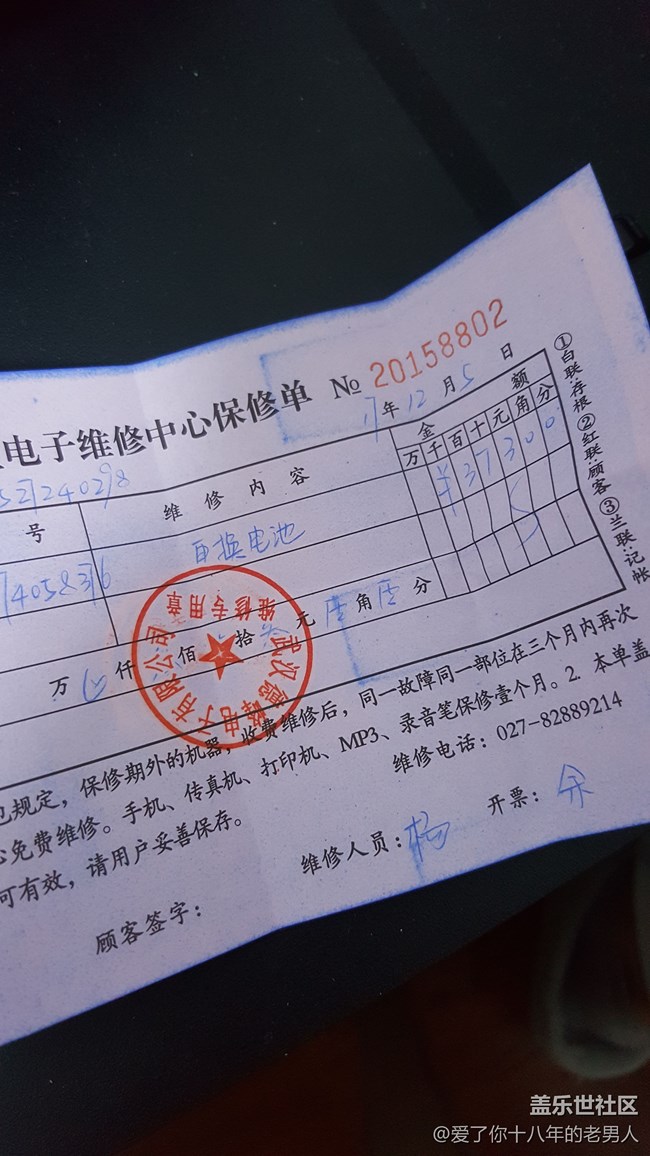 电子维修中心保修单 № 20158802
17年12月5日
号 维修内容 金额
万千百十元角分
换电池 ¥37300
万 仟 佰 拾 元 角 分
武汉 电子有限公司
维修专用章
规定，保修期外的机器，收费维修后，同一故障同一部位在三个月内再次
免费维修。手机、传真机、打印机、MP3、录音笔保修壹个月。2. 本单盖
可有效，请用户妥善保存。
维修电话：027-82889214
顾客签字： 维修人员：杨 开票：余
①白联：存根 ②红联：顾客 ③兰联：记帐
盖乐世社区
@爱了你十八年的老男人